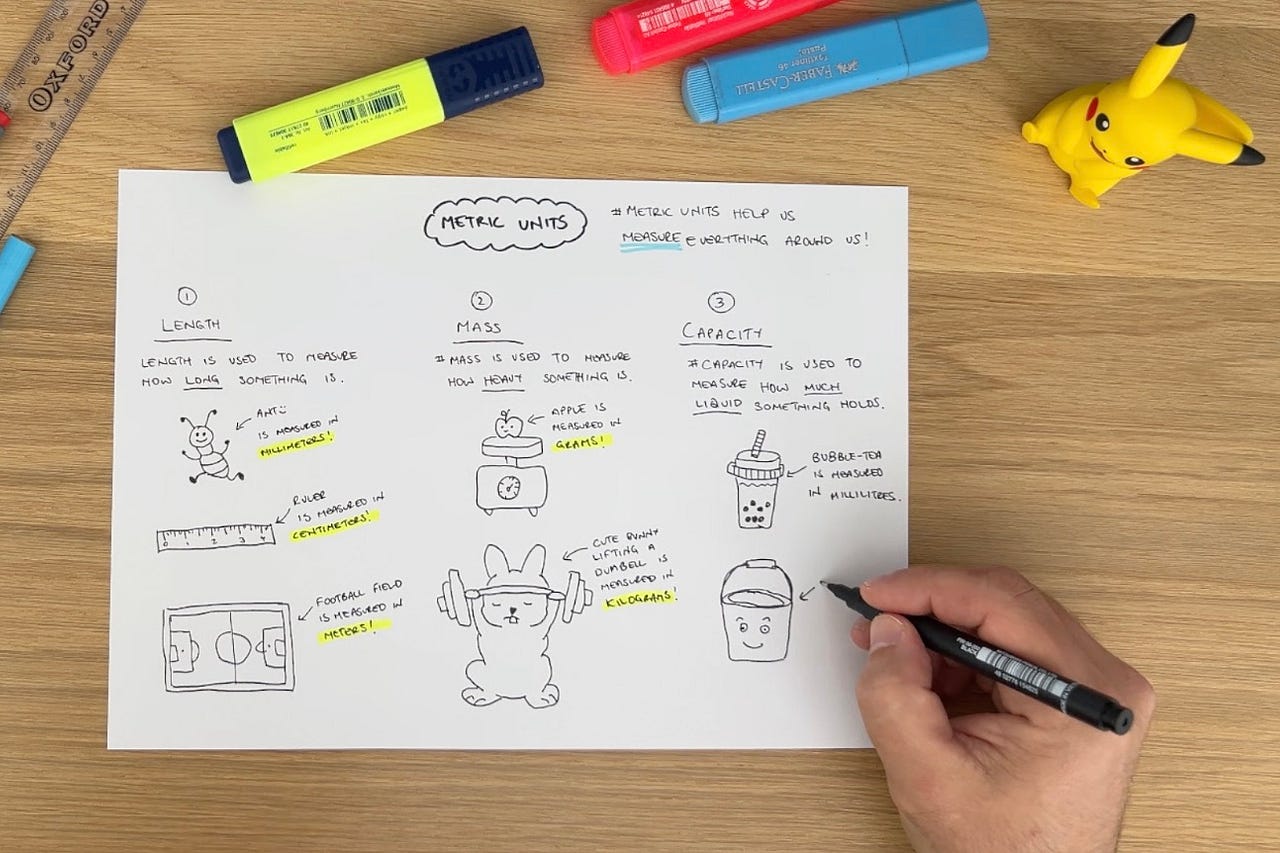 OXFORD
FABER-CASTELL
Textliner 46
Pastel
METRIC UNITS
# METRIC UNITS HELP US
MEASURE EVERYTHING AROUND US!
1
LENGTH
LENGTH IS USED TO MEASURE
HOW LONG SOMETHING IS.
ANT
IS MEASURED IN
MILLIMETERS!
RULER
IS MEASURED IN
CENTIMETERS!
0 1 2 3 4
FOOTBALL FIELD
IS MEASURED IN
METERS!
2
MASS
# MASS IS USED TO MEASURE
HOW HEAVY SOMETHING IS.
APPLE IS
MEASURED IN
GRAMS!
CUTE BUNNY
LIFTING A
DUMBELL IS
MEASURED IN
KILOGRAMS!
3
CAPACITY
# CAPACITY IS USED TO
MEASURE HOW MUCH
LIQUID SOMETHING HOLDS.
BUBBLE-TEA
IS MEASURED
IN MILLILITRES.
BLACK